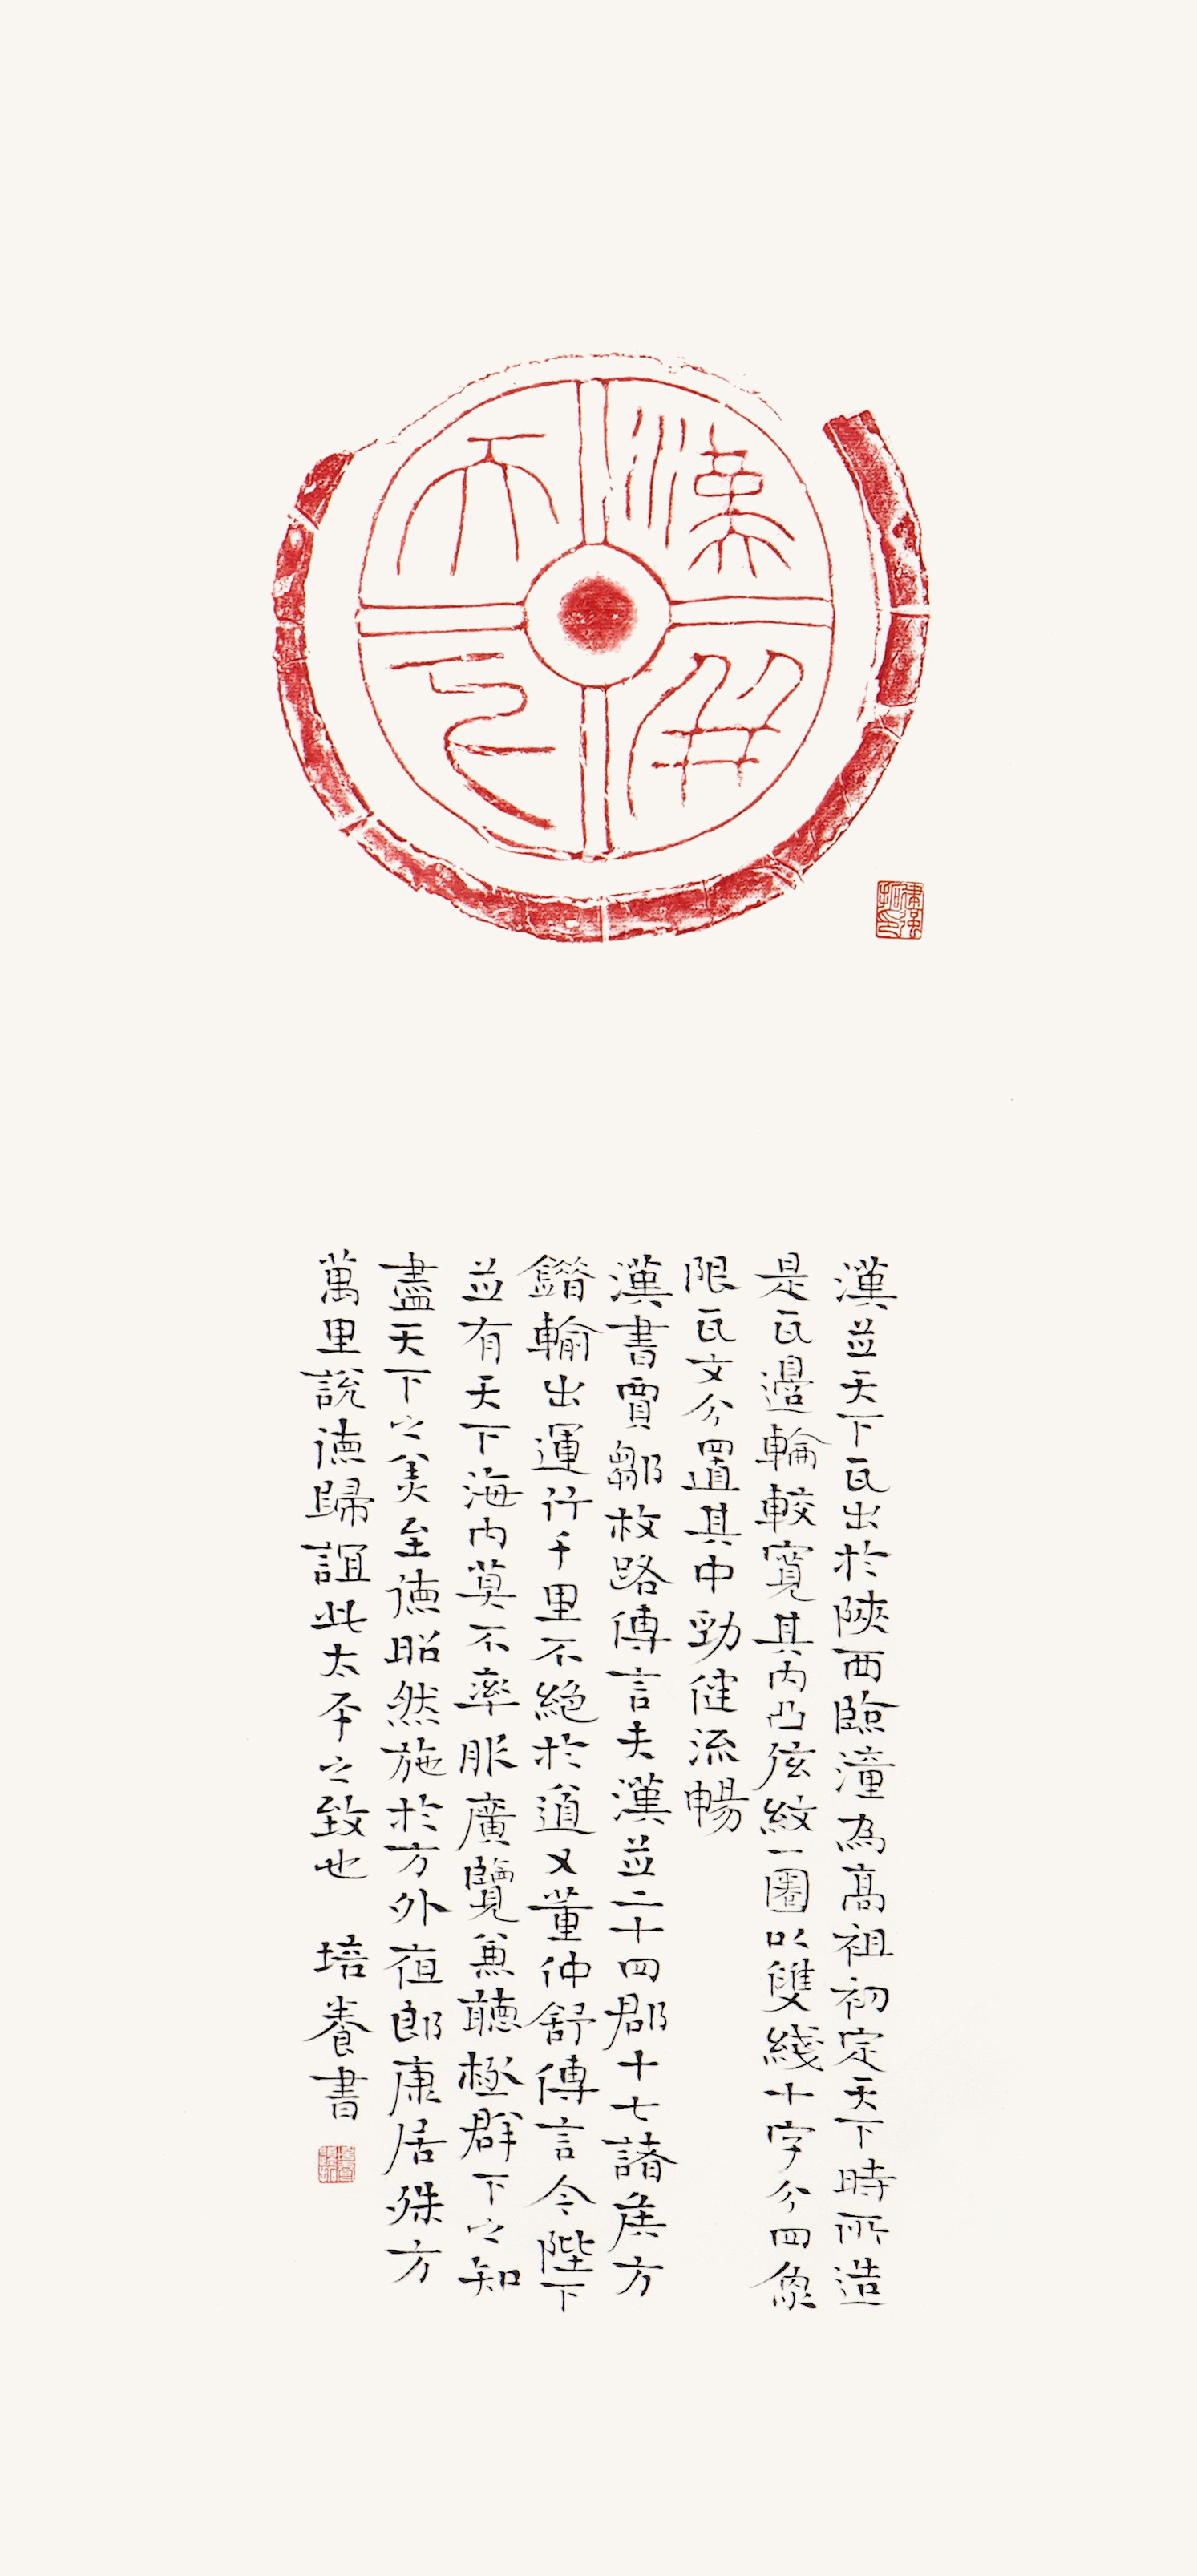 漢并天下
漢並天下瓦出於陝西臨潼為高祖初定天下時所造
是瓦邊輪較寬其內凸弦紋一圈以雙綫十字分四象
限瓦文分置其中勁健流暢
漢書賈鄒枚路傳言夫漢並二十四郡十七諸侯方
錯輸出運行千里不絕於道又董仲舒傳言今陛下
並有天下海內莫不率服廣覽兼聽極群下之知
盡天下之美至德昭然施於方外夜郎康居殊方
萬里說德歸誼此太平之致也 培養書